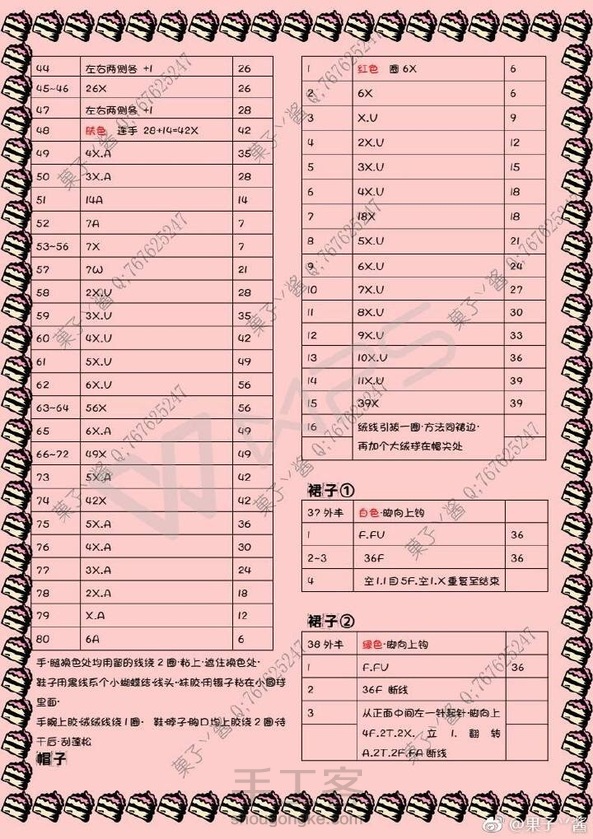 44 左右两侧各 +1 26
45-46 26X 26
47 左右两侧各 +1 28
48 肤色 连手 28+14=42X 42
49 4X.A 35
50 3X.A 28
51 14A 14
52 7A 7
53-56 7X 7
57 7W 21
58 2X.U 28
59 3X.U 35
60 4X.U 42
61 5X.U 49
62 6X.U 56
63-64 56X 56
65 6X.A 49
66-72 49X 49
73 5X.A 42
74 42X 42
75 5X.A 36
76 4X.A 30
77 3X.A 24
78 2X.A 18
79 X.A 12
80 6A 6
手·腿换色处均用留的线绕2圈·粘上·遮住换色处·
鞋子用黑线系个小蝴蝶结·线头·抹胶·用镊子粘在小圆球
里面·
手腕上胶·绒绒线绕1圈· 鞋·脖子·胸口均上胶绕2圈·待
干后·刮蓬松
帽子
1 红色 圈6X 6
2 6X 6
3 X.U 9
4 2X.U 12
5 3X.U 15
6 4X.U 18
7 18X 18
8 5X.U 21
9 6X.U 24
10 7X.U 27
11 8X.U 30
12 9X.U 33
13 10X.U 36
14 11X.U 39
15 39X 39
16 绒线引拔一圈·方法同裙边·
再加个大绒球在帽尖处
裙子①
37外半 白色·脚向上钩
1 F.FU 36
2-3 36F 36
4 空1.1自5F.空1.X重复至结束
裙子②
38外半 绿色·脚向上钩
1 F.FU 36
2 36F 断线
3 从正面中间左一针起针·脚向上
4F.2T.2X. 立1. 翻转
A.2T.2F.FA断线
菓子丷酱 Q:767625247
手工客
shougongke.com
@菓子丷酱